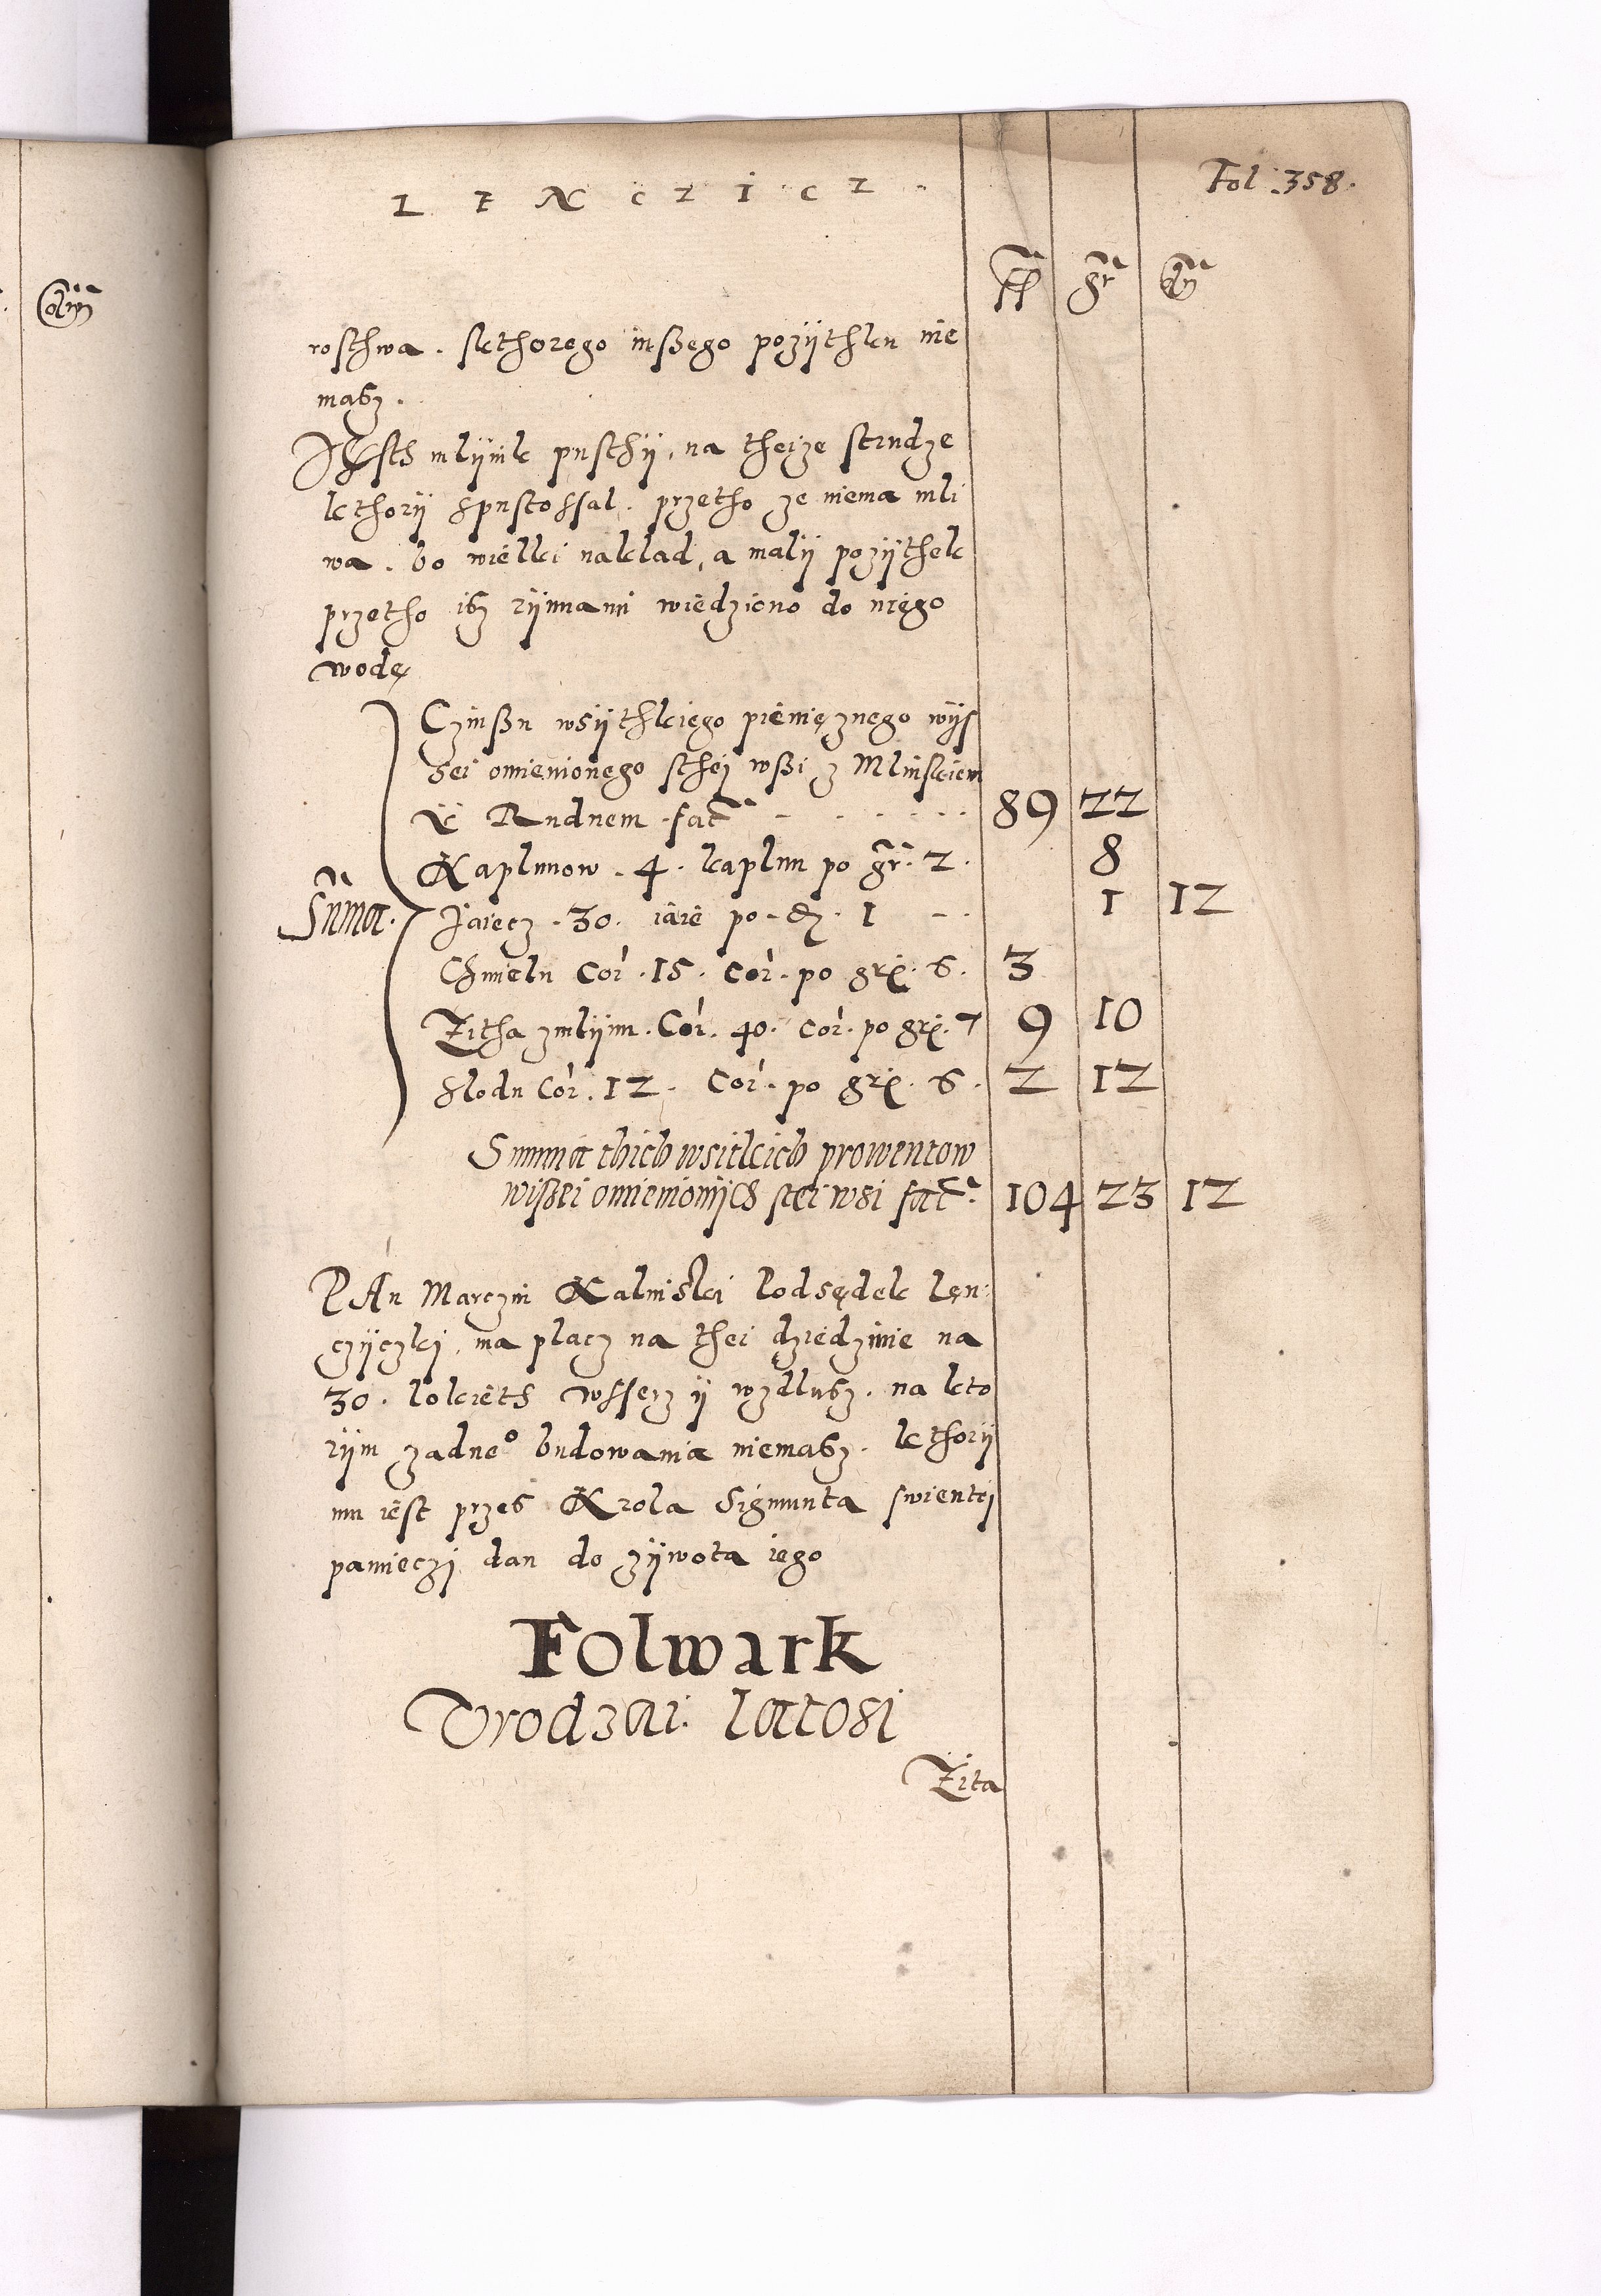 LENCZICZ.
Fol. 358.
fl gr dn
rosthwa. kthorego inßego pozÿthku nie
masz.
JEsth mlÿnik pusthÿ, na theize strudze
kthorÿ spustossal. przetho ze niema mli
wa. bo wielki naklad, a malÿ pozÿthek
przetho isz rÿnnami wiedziono do niego
wodę
Czinßu wsÿthkiego pienięznego wÿs
sei omienionego sthej wßi z Mlinskiem
Y Rudnem fac̃ 89 22
Kaplunow. 4. kaplun po gr. 2. 8
Suma. Jaiecz. 30. iaie po. d. 1 1 12
Chmielu Cor. 15. Cor. po grͦ. 6. 3
Zitha zmlÿnu. Cor. 40. Cor. po gr. 7 9 10
Slodu Cor. 12. Cor. po gr. 6. 2 12
Summa thich wsitkich prowentow
wißei omienionÿch stei wsi fac̃. 104 23 12
PAn Marczin Kalinski Podsędek Lęn-
czÿczkj, ma placz na thei dziedzinie na
30. lokieth wsserz ÿ wzdlusz. na kto
rÿm zadneº budowania niemasz. kthorÿ
mu iest przes Krola Sigmunta swientej
pamieczj dan do zÿwota iego
Folwark
Vrodzai latosi
Zita